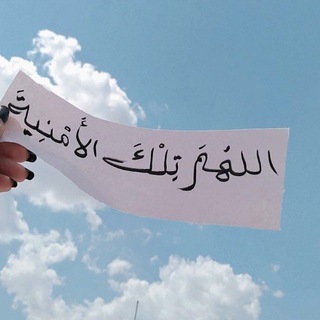 اللهُمَ تِلْكَ الأَمْنِيَّة